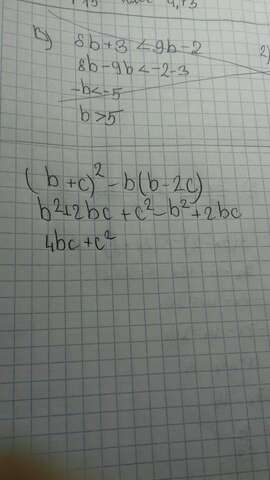 в) 8b+3<9b-2
8b-9b<-2-3
-b<-5
b>5
2)
(b+c)²-b(b-2c)
b²+2bc+c²-b²+2bc
4bc+c²